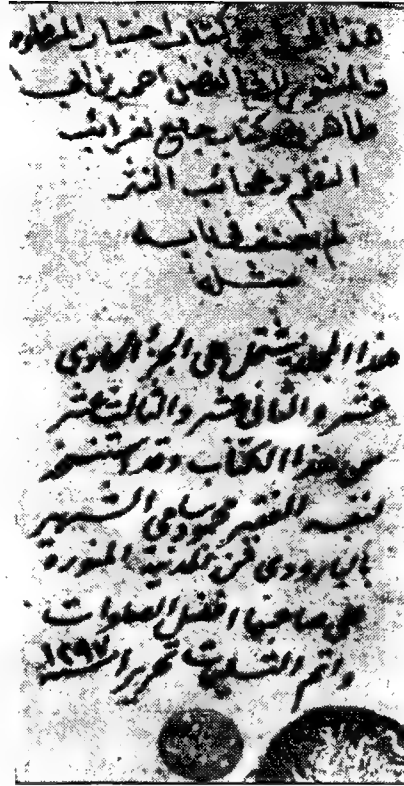 هذا المجلد من كتاب اختيار المنظوم
والمنثور لابى الفضل احمد بن ابى
طاهر وهو كتاب جامع لغرائب
النظم وعجائب النثر
لم يصنف فى بابه
مثله
هذا المجلد يشتمل على الجزء الحادى
عشر والثانى عشر والثالث عشر
من هذا الكتاب وقد استنسخه
لنفسه الفقير محمود سامى الشهير
بالبارودى من المدينة المنورة
على صاحبها افضل الصلوات
واتم التسليمات تحريرا سنه ١٢٩٧